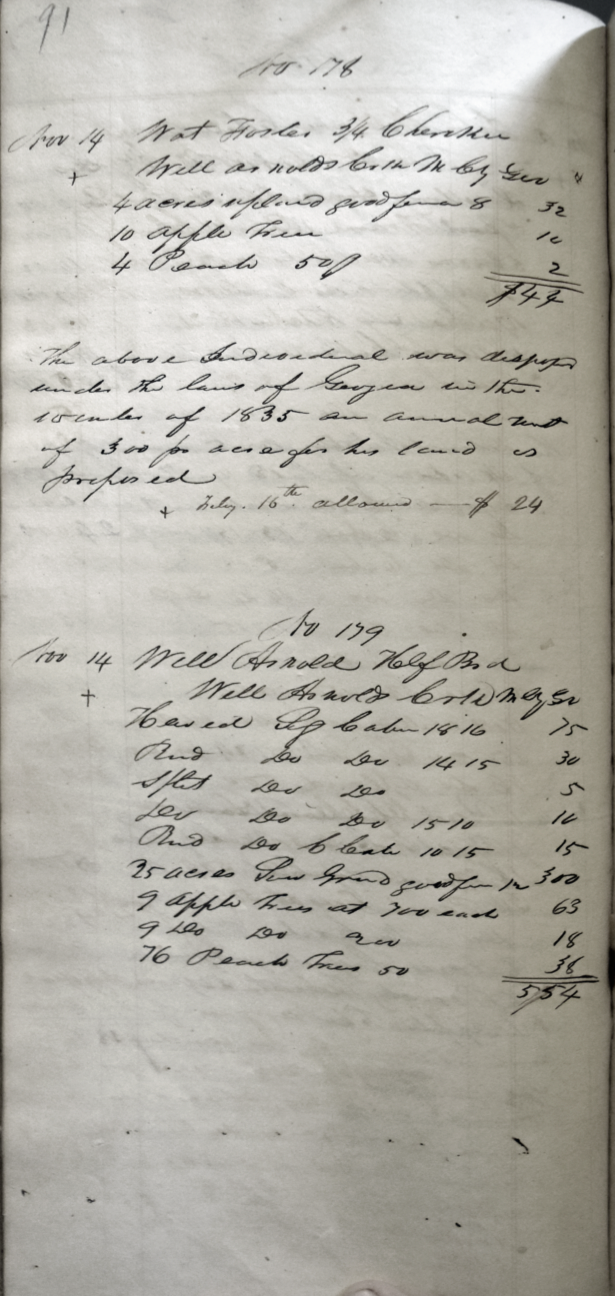 91
No 178
Nov 14 Wat Foster 3/4 Cherokee
+ Will Arnolds Crk M Cty Geo "
4 acres upland good fence 8 32
10 apple Trees 10
4 Peach 50 2
$44
The above Individual was disposs
under the laws of Georgia in the
winter of 1835 an annual rent
of 300 pr acre for his land is
proposed
+ Feby. 16th allowed — $ 24
No 179
Nov 14 Will Arnold Half Brd
+ Will Arnolds Crk M Cty Geo
Hewed Log Cabin 18 16 75
Rnd Do Do 14 15 30
Split Do Do 5
Do Do Do 15 10 10
Rnd Do C Crib 10 15 15
25 acres Grnd good fen 12 300
9 apple Trees at 700 each 63
9 Do Do 200 18
76 Peach Trees 50 38
554